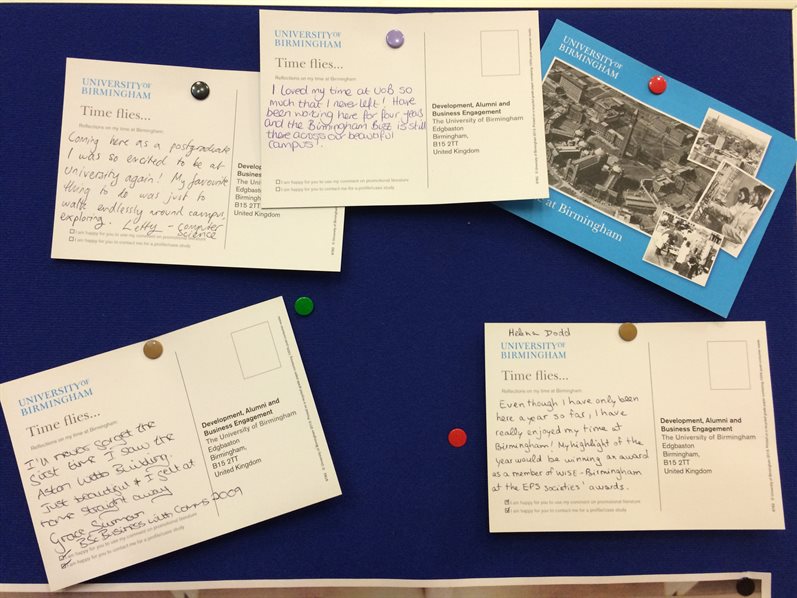 UNIVERSITY OF
BIRMINGHAM
Time flies...
Reflections on my time at Birmingham:
I loved my time at UOB so
much that I never left! Have
been working here for four years
and the Birmingham Buzz is still
there across our beautiful
campus!
I am happy for you to use my comment on promotional literature
I am happy for you to contact me for a profile/case study
Development, Alumni and
Business Engagement
The University of Birmingham
Edgbaston
Birmingham,
B15 2TT
United Kingdom
UNIVERSITY OF
BIRMINGHAM
Time flies...
Reflections on my time at Birmingham:
Coming here as a postgraduate
I was so excited to be at
university again! My favourite
thing to do was just to
walk endlessly around campus,
exploring. Letty - computer
science
I am happy for you to use my comment on promotional literature
I am happy for you to contact me for a profile/case study
Develop
Busine
The Uni
Edgbas
Birming
B15 2TT
United Kingdom
UNIVERSITY OF
BIRMINGHAM
at Birmingham
UNIVERSITY OF
BIRMINGHAM
Time flies...
Reflections on my time at Birmingham:
I'll never forget the
first time I saw the
Aston Webb Building.
Just beautiful & I felt at
home straight away
Grace
BSc Business with Comms 2009
I am happy for you to use my comment on promotional literature
I am happy for you to contact me for a profile/case study
Development, Alumni and
Business Engagement
The University of Birmingham
Edgbaston
Birmingham,
B15 2TT
United Kingdom
Helena Dodd
UNIVERSITY OF
BIRMINGHAM
Time flies...
Reflections on my time at Birmingham:
Even though I have only been
here a year so far, I have
really enjoyed my time at
Birmingham! My highlight of the
year would be winning an award
as a member of WISE-Birmingham
at the EPS societies' awards.
I am happy for you to use my comment on promotional literature
I am happy for you to contact me for a profile/case study
Development, Alumni and
Business Engagement
The University of Birmingham
Edgbaston
Birmingham,
B15 2TT
United Kingdom